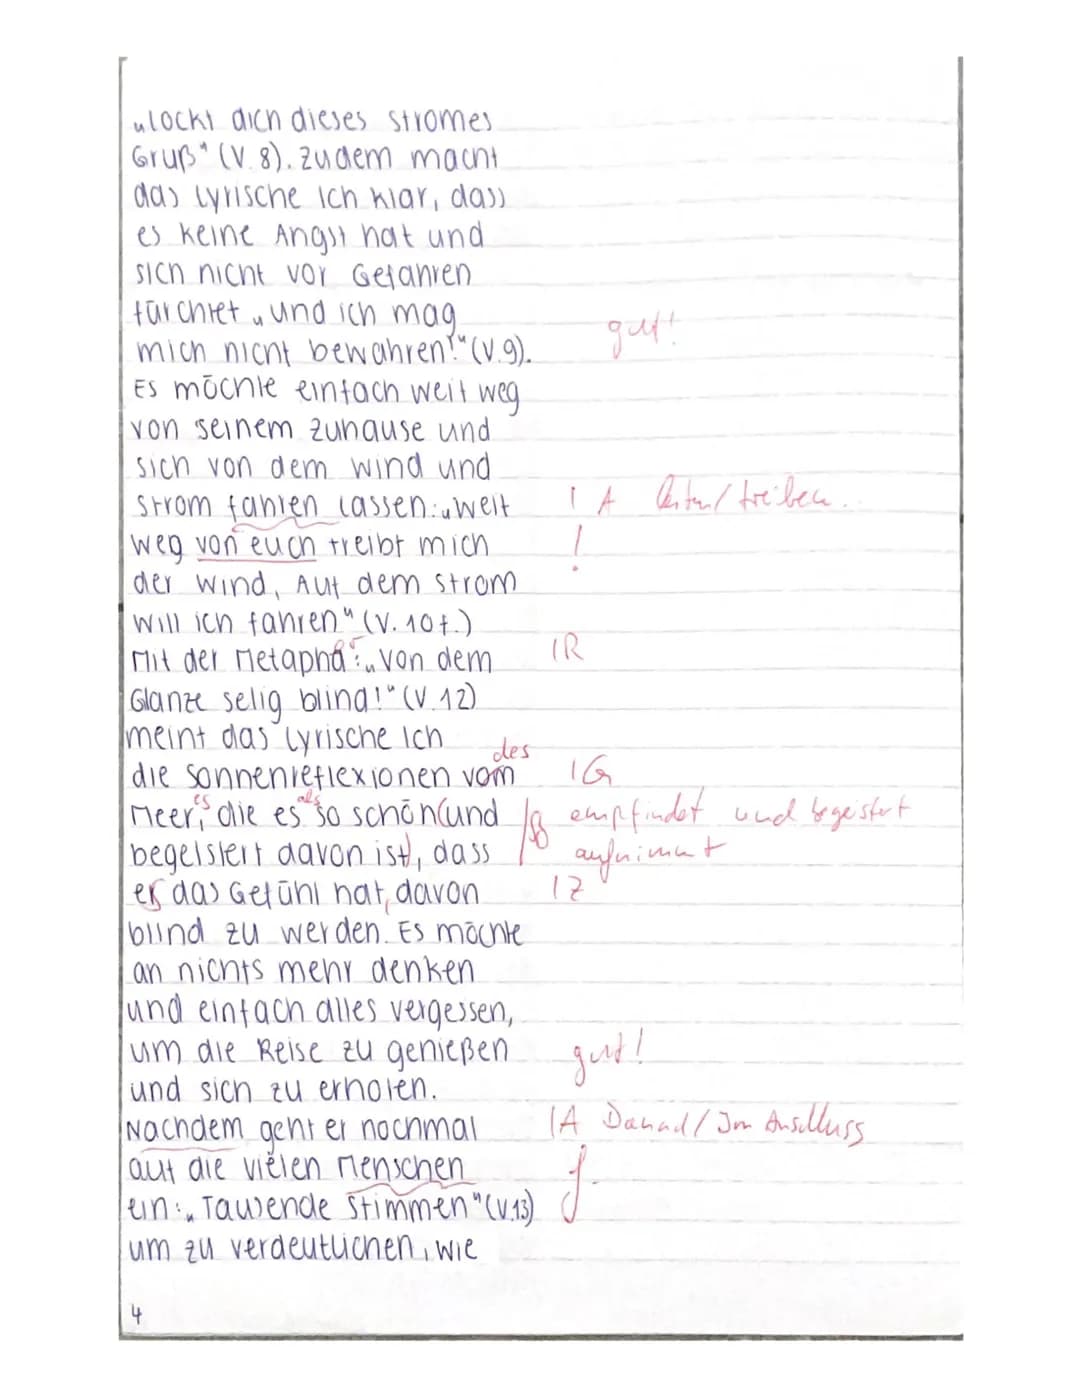 „lockt dich dieses Stromes
Gruß" (V. 8). Zudem macht
das lyrische Ich klar, dass
es keine Angst hat und
sich nicht vor Gefahren
fürchtet „und ich mag
mich nicht bewahren!" (V.9). gut!
Es möchte einfach weit weg
von seinem Zuhause und
sich von dem Wind und
Strom fahren lassen: „Weit | A / treiben.
weg von euch treibt mich !
der Wind, Auf dem Strom
will ich fahren" (V. 10f.)
Mit der Metapher: „Von dem | R
Glanze selig blind!" (V. 12)
meint das lyrische Ich
des
die Sonnenreflexionen vom | G
Meer, die es so schön (und empfindet und begeistert
es als
begeistert davon ist), dass aufnimmt
er das Gefühl hat, davon | Z
blind zu werden. Es möchte
an nichts mehr denken
und einfach alles vergessen,
um die Reise zu genießen gut!
und sich zu erholen.
Nachdem geht er nochmal | A Danach / Im Anschluss
auf die vielen Menschen
ein: „Tausende Stimmen" (V.13)
um zu verdeutlichen, wie
4